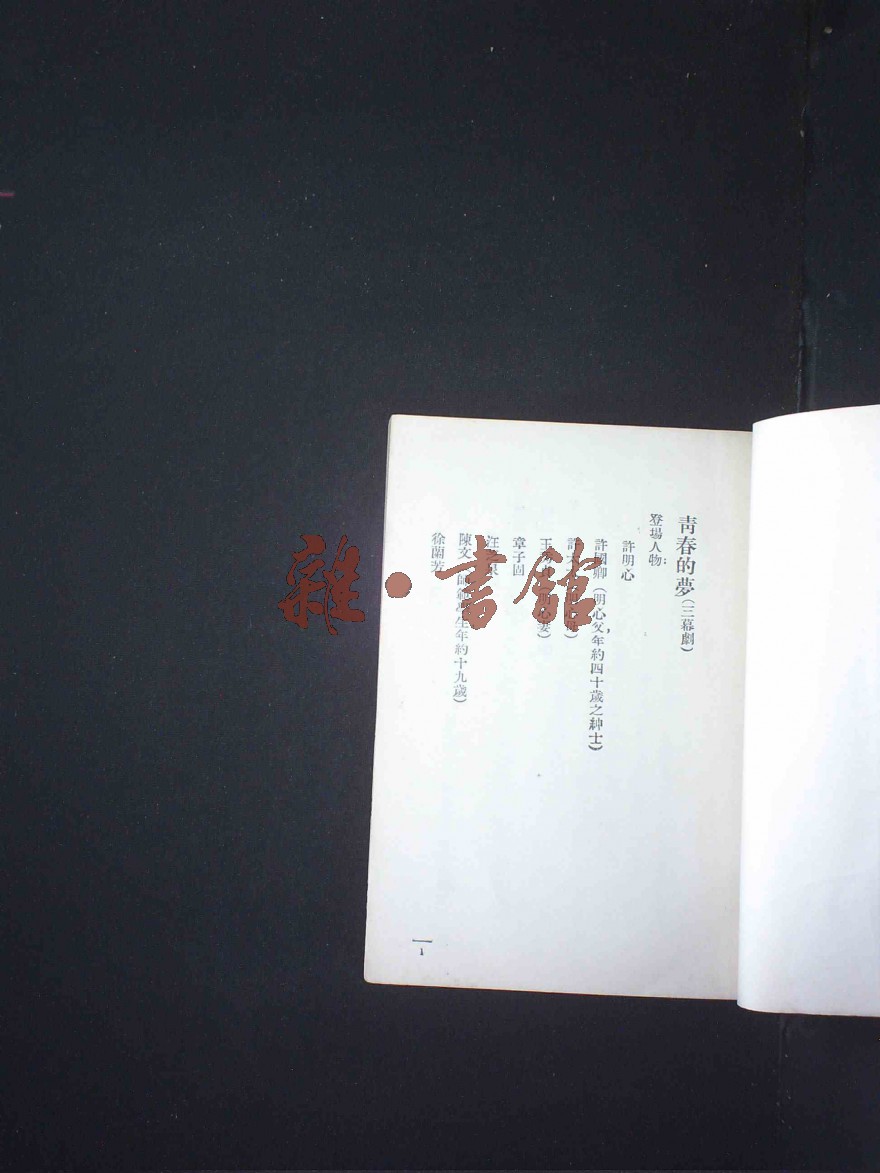 青春的夢(三幕劇)
登場人物：
許明心
許國卿(明心父,年約四十歲之紳士)
許
王 妻)
章子固
汪 泉
陳文 師範學生年約十九歲)
徐蘭若
一
雜·書館